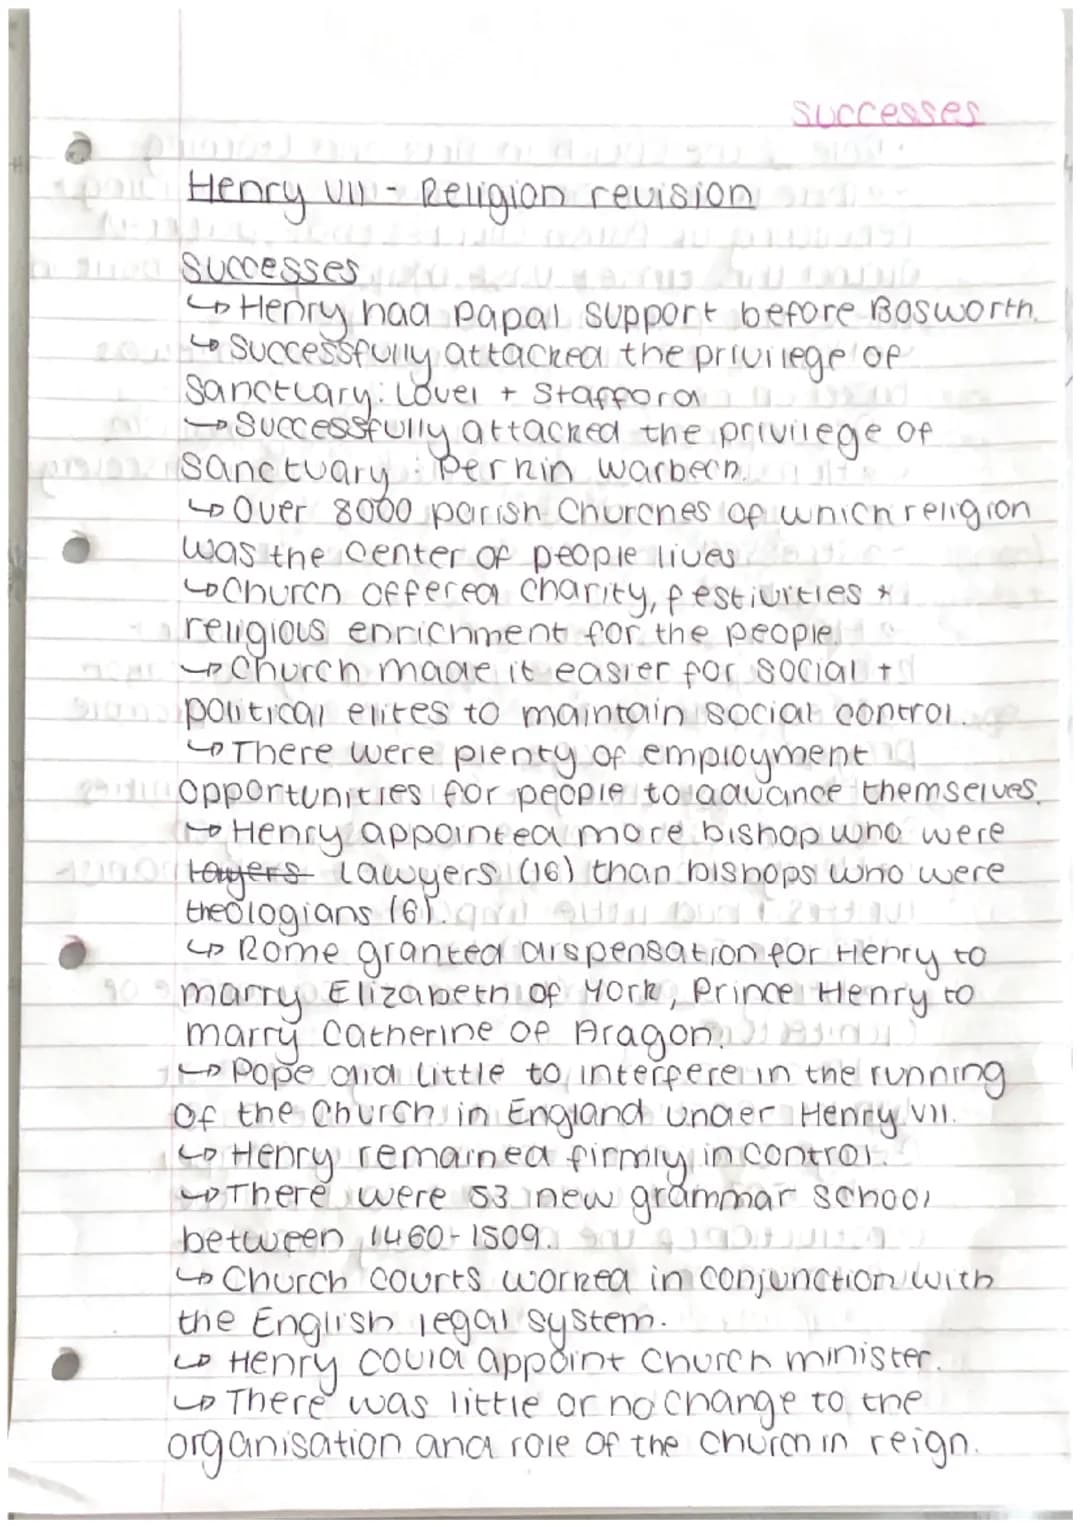 Successes
Henry VII - Religion revision
Successes
↳ Henry had Papal support before Bosworth.
↳ Successfully attacked the privilege of
Sanctuary: Lovel + Stafford
↳ Successfully attacked the privilege of
Sanctuary: Perkin Warbeck.
↳ Over 8000 parish Churches of which religion
was the center of people lives
↳ Church offered charity, festivities +
religious enrichment for the people.
↳ Church made it easier for social +
political elites to maintain social control.
↳ There were plenty of employment
opportunities for people to advance themselves.
↳ Henry appointed more bishop who were
layers Lawyers (16) than bishops who were
theologians (6).
↳ Rome granted dispensation for Henry to
marry Elizabeth of York, Prince Henry to
marry Catherine of Aragon.
↳ Pope did little to interfere in the running
of the Church in England under Henry VII.
↳ Henry remained firmly in control.
↳ There were 53 new grammar school
between 1460-1509.
↳ Church courts worked in conjunction with
the English legal system.
↳ Henry could appoint Church minister.
↳ There was little or no change to the
organisation and role of the Church in reign.